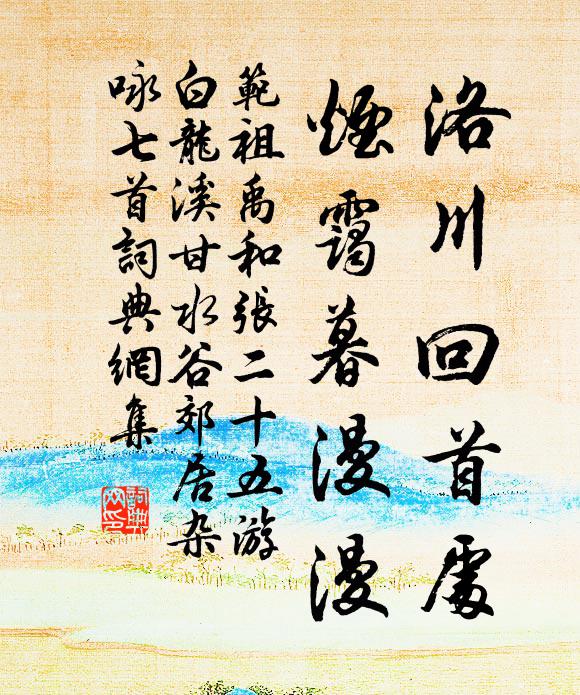 洛川回首處
煙靄暮漫漫
範祖禹和張二十五游
白龍溪甘水谷郊居杂
咏七首詞典網集
詞典网印